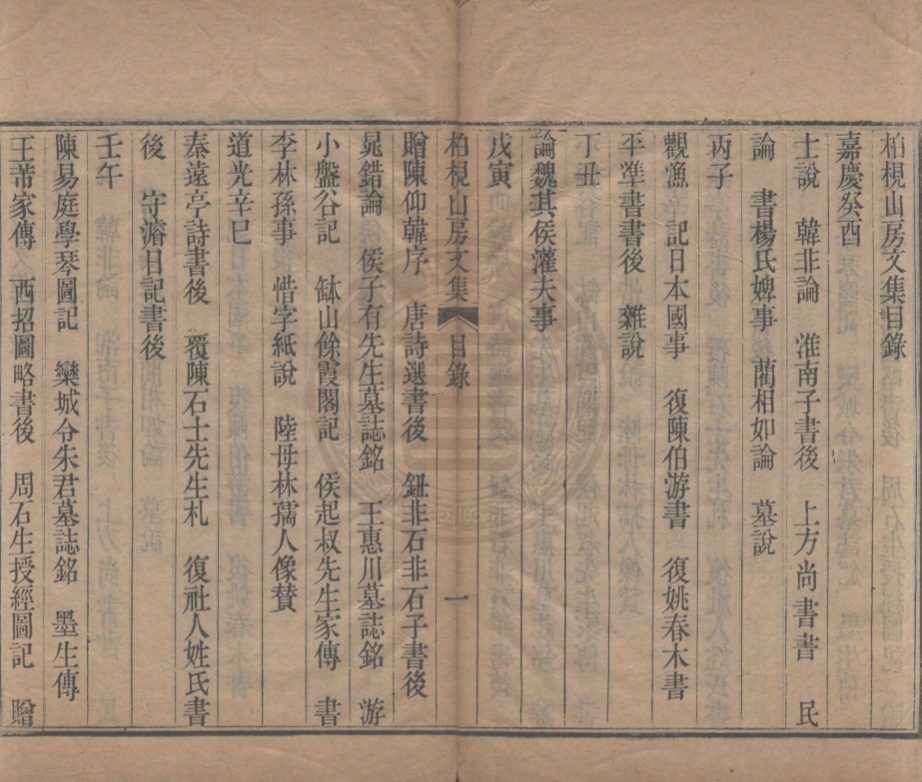 柏梘山房文集目錄
嘉慶癸酉
士說　韓非論　淮南子書後　上方尚書書　民
論　書楊氏婢事　藺相如論　墓說
丙子
觀漁　記日本國事　復陳伯游書　復姚春木書
平準書書後　雜說
丁丑
論魏其侯灌夫事
戊寅
柏梘山房文集　目錄　一
贈陳仰韓序　唐詩選書後　鈕非石非石子書後
晁錯論　侯子有先生墓誌銘　王惠川墓誌銘　游
小盤谷記　缽山餘霞閣記　侯起叔先生家傳　書
李林孫事　惜字紙說　陸母林孺人像贊
道光辛巳
秦遠亭詩書後　覆陳石士先生札　復社人姓氏書
後　守濬日記書後
壬午
陳易庭學琴圖記　欒城令朱君墓誌銘　墨生傳
王芾家傳　西招圖略書後　周石生授經圖記　贈